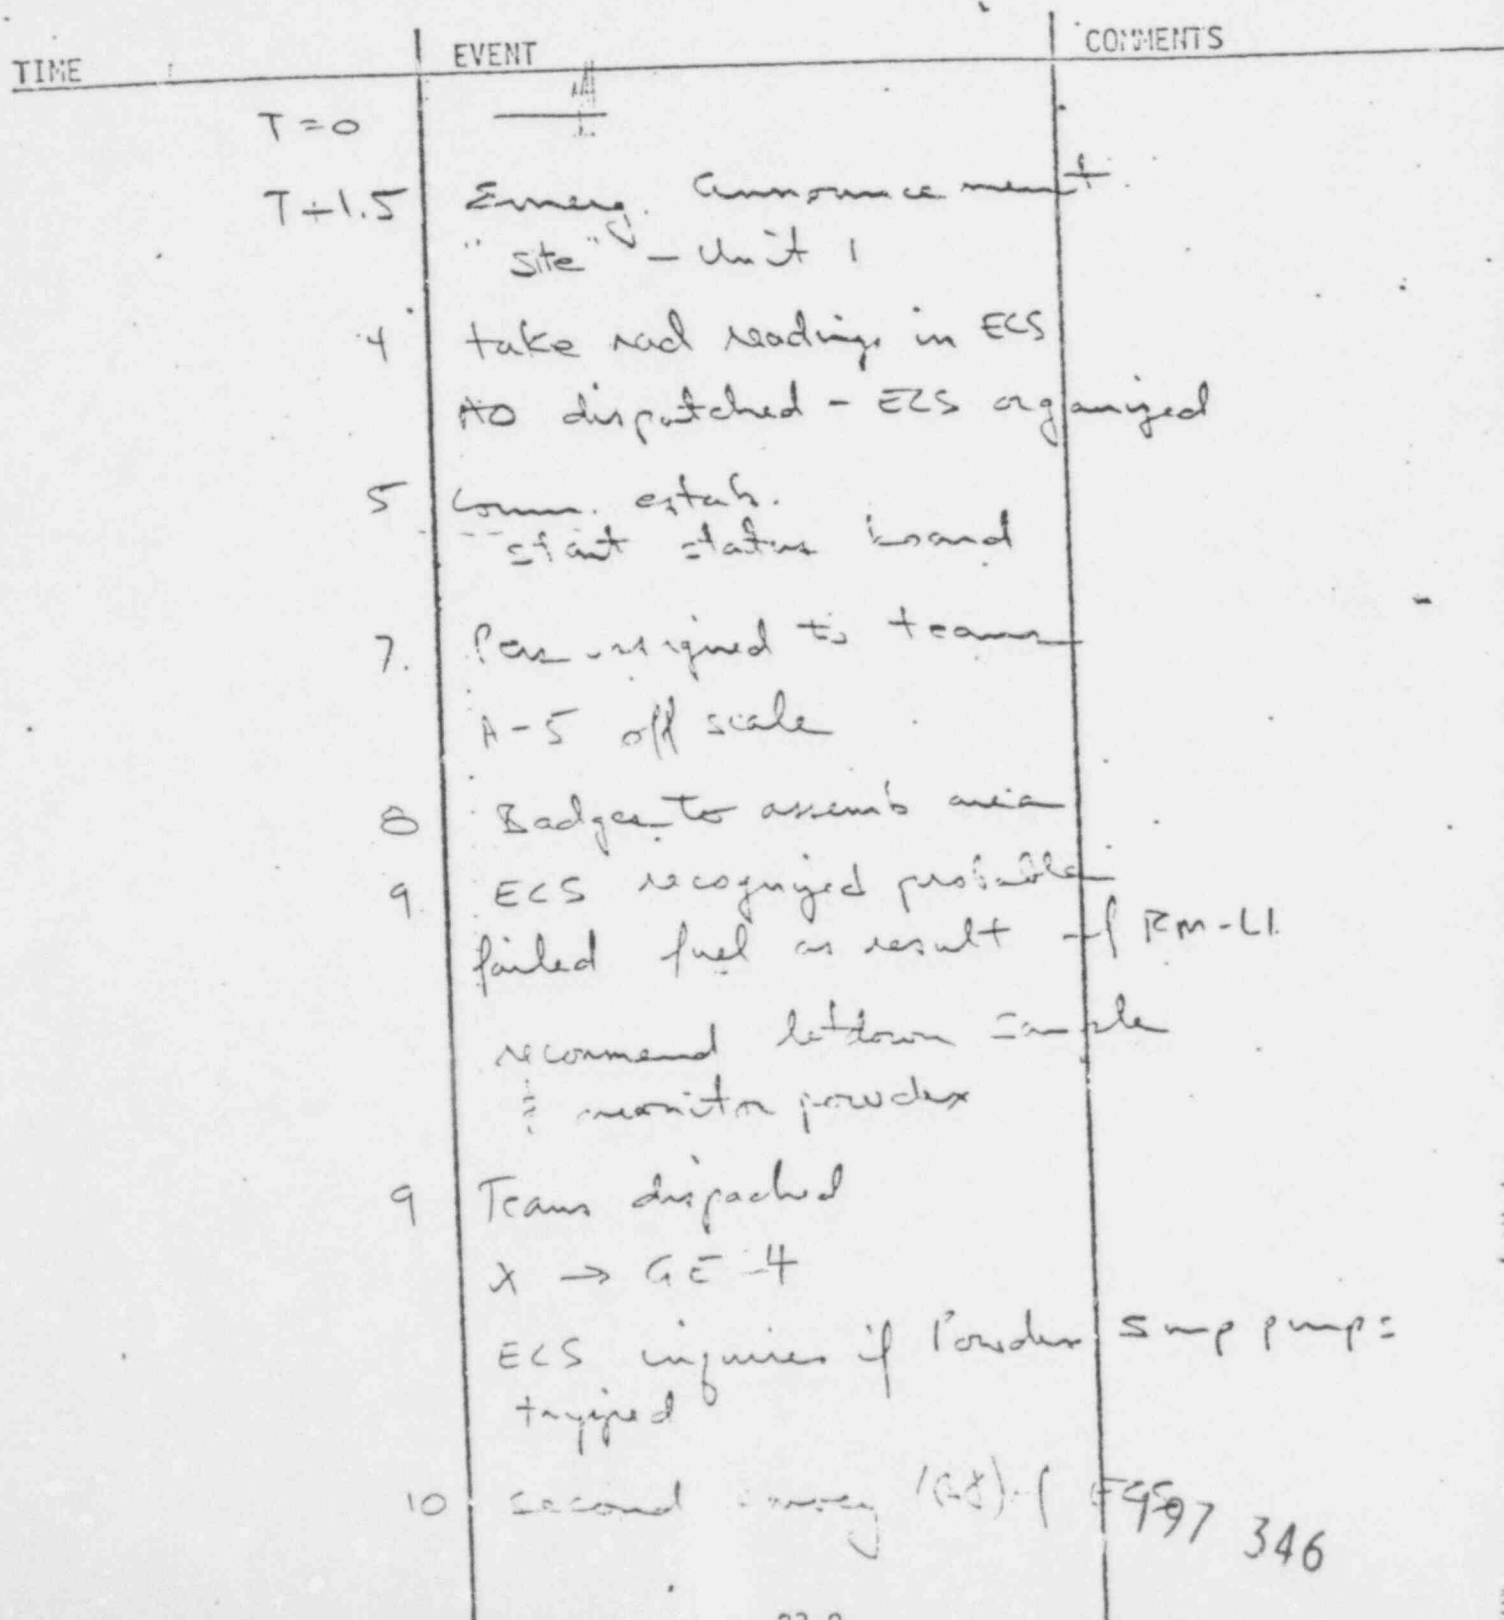 TIME EVENT COMMENTS
T=0
T+1.5 Emerg. announcement.
"Site" - Unit 1
4 take rad readings in ECS
AO dispatched - ECS organized
5 Comm. estab.
start status board
7. Pers assigned to teams
A-5 off scale
8 Badges to assemb area
9. ECS recognized probable
failed fuel as result of RM-L1.
recommend letdown sample
& monitor powdex
9 Teams dispached
X → GE-4
ECS inquires if Powdex sump pumps
tripped
10 second survey of ECS
997 346